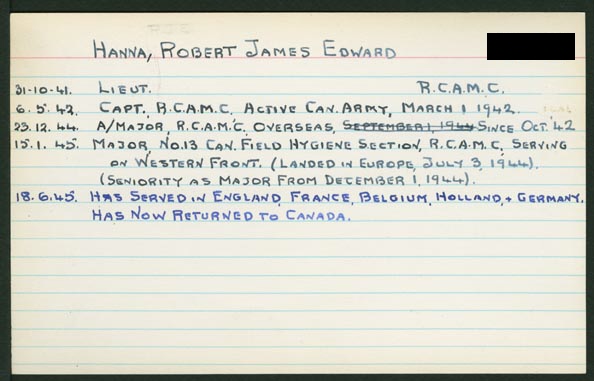 HANNA, ROBERT JAMES EDWARD
31-10-41. LIEUT. R.C.A.M.C.
6. 5. 42. CAPT., R.C.A.M.C. ACTIVE CAN. ARMY, MARCH 1 1942.
23.12. 44. A/MAJOR, R.C.A.M.C. OVERSEAS, SEPTEMBER 1, 1944 SINCE OCT. '42
15. 1. 45. MAJOR, NO.13 CAN. FIELD HYGIENE SECTION, R.C.A.M.C. SERVING
ON WESTERN FRONT. (LANDED IN EUROPE, JULY 3, 1944).
(SENIORITY AS MAJOR FROM DECEMBER 1, 1944).
18. 6. 45. HAS SERVED IN ENGLAND, FRANCE, BELGIUM, HOLLAND, + GERMANY.
HAS NOW RETURNED TO CANADA.